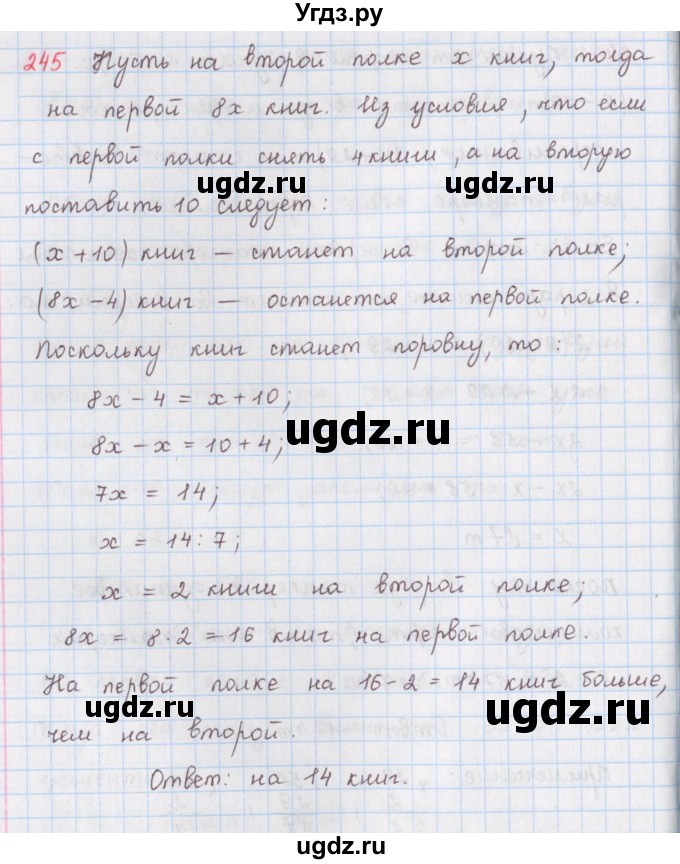 Угдз.ру
245 Пусть на второй полке x книг, тогда
на первой 8x книг. Из условия, что если
с первой полки снять 4 книги, а на вторую
ugdz.ru ugdz.ru
поставить 10 следует:
(x+10) книг — станет на второй полке;
(8x-4) книг — останется на первой полке.
Поскольку книг станет поровну, то:
8x - 4 = x + 10;
ugdz.ru
8x - x = 10 + 4;
7x = 14;
x = 14 : 7;
x = 2 книги на второй полке;
8x = 8 · 2 = 16 книг на первой полке.
На первой полке на 16 - 2 = 14 книг больше,
ugdz.ru ugdz.ru
чем на второй.
Ответ: на 14 книг.
ugdz.ru